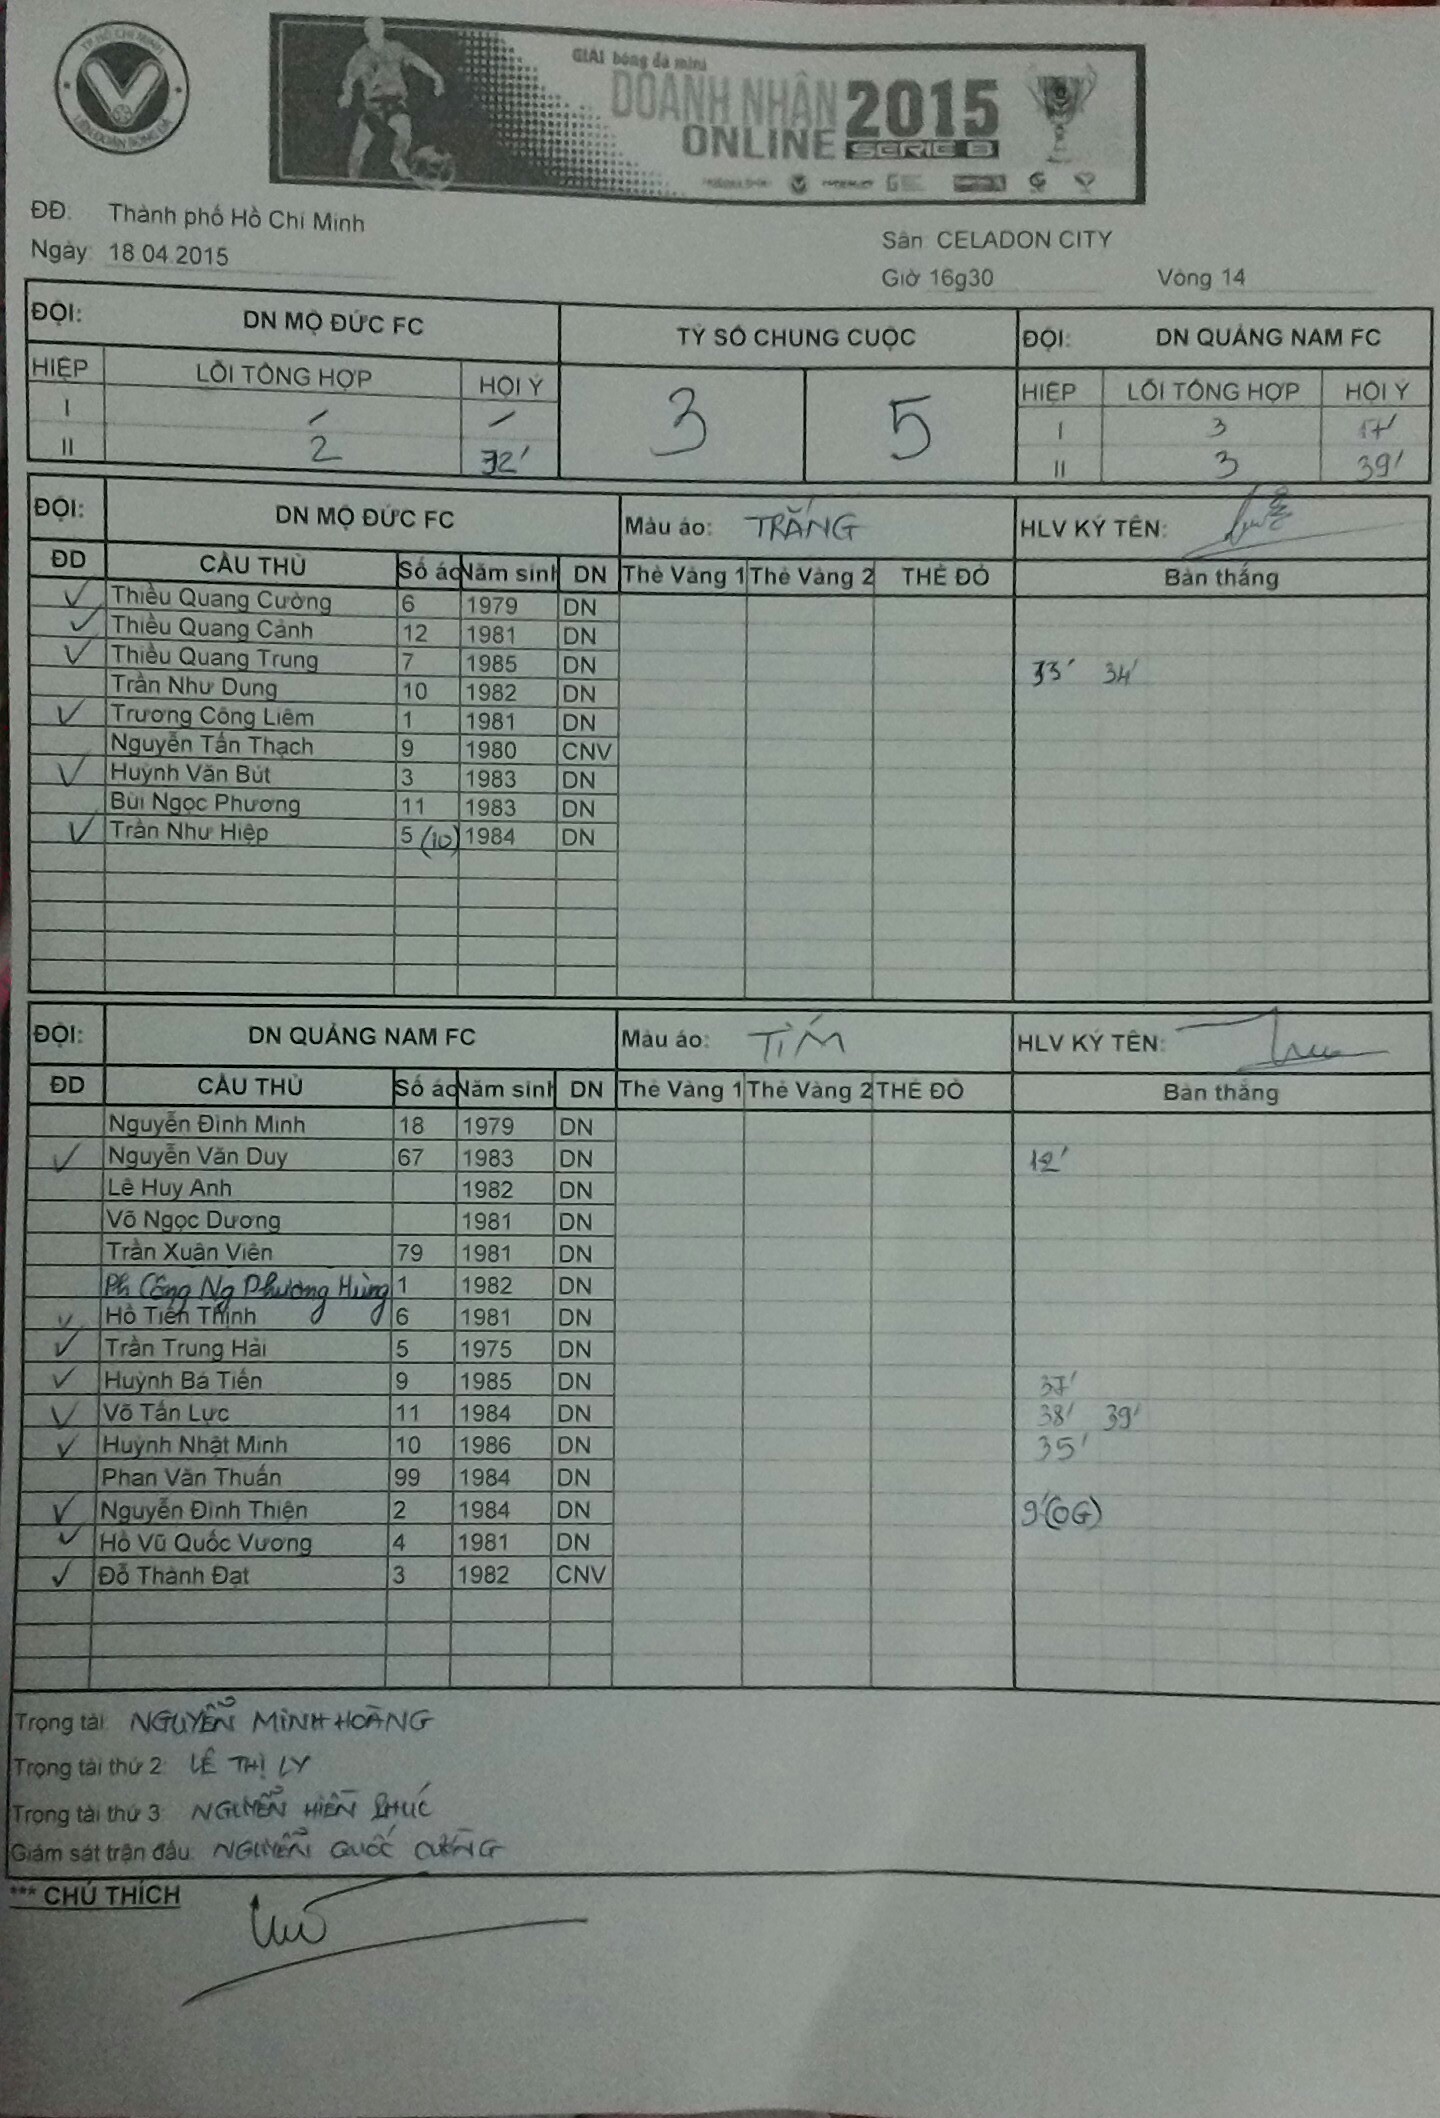 TP HỒ CHÍ MINH
LIÊN ĐOÀN BÓNG ĐÁ
GIẢI bóng đá mini
DOANH NHÂN 2015
ONLINE SERIE B
ĐĐ: Thành phố Hồ Chí Minh
Sân: CELADON CITY
Ngày: 18.04.2015
Giờ 16g30 Vòng 14
ĐỘI: DN MỘ ĐỨC FC TỶ SỐ CHUNG CUỘC ĐỘI: DN QUẢNG NAM FC
HIỆP LỖI TỔNG HỢP HỘI Ý 3 5 HIỆP LỖI TỔNG HỢP HỘI Ý
I / / I 3 17'
II 2 32' II 3 39'
ĐỘI: DN MỘ ĐỨC FC Màu áo: TRẮNG HLV KÝ TÊN:
ĐD CẦU THỦ Số áo Năm sinh DN Thẻ Vàng 1 Thẻ Vàng 2 THẺ ĐỎ Bàn thắng
✓ Thiều Quang Cường 6 1979 DN
✓ Thiều Quang Cảnh 12 1981 DN
✓ Thiều Quang Trung 7 1985 DN 33' 34'
Trần Như Dung 10 1982 DN
✓ Trương Công Liêm 1 1981 DN
Nguyễn Tấn Thạch 9 1980 CNV
✓ Huỳnh Văn Bút 3 1983 DN
Bùi Ngọc Phương 11 1983 DN
✓ Trần Như Hiệp 5 (10) 1984 DN
ĐỘI: DN QUẢNG NAM FC Màu áo: TÍM HLV KÝ TÊN:
ĐD CẦU THỦ Số áo Năm sinh DN Thẻ Vàng 1 Thẻ Vàng 2 THẺ ĐỎ Bàn thắng
Nguyễn Đình Minh 18 1979 DN
✓ Nguyễn Văn Duy 67 1983 DN 12'
Lê Huy Anh 1982 DN
Võ Ngọc Dương 1981 DN
Trần Xuân Viên 79 1981 DN
Ph Công Ng Phương Hùng 1 1982 DN
✓ Hồ Tiến Thịnh 6 1981 DN
✓ Trần Trung Hải 5 1975 DN
✓ Huỳnh Bá Tiến 9 1985 DN 37'
✓ Võ Tấn Lực 11 1984 DN 38' 39'
✓ Huỳnh Nhật Minh 10 1986 DN 35'
Phan Văn Thuấn 99 1984 DN
✓ Nguyễn Đình Thiện 2 1984 DN 9' (OG)
✓ Hồ Vũ Quốc Vương 4 1981 DN
✓ Đỗ Thành Đạt 3 1982 CNV
Trọng tài: NGUYỄN MINH HOÀNG
Trọng tài thứ 2: LÊ THỊ LY
Trọng tài thứ 3: NGUYỄN HIỀN PHÚC
Giám sát trận đấu: NGUYỄN QUỐC CƯỜNG
*** CHÚ THÍCH